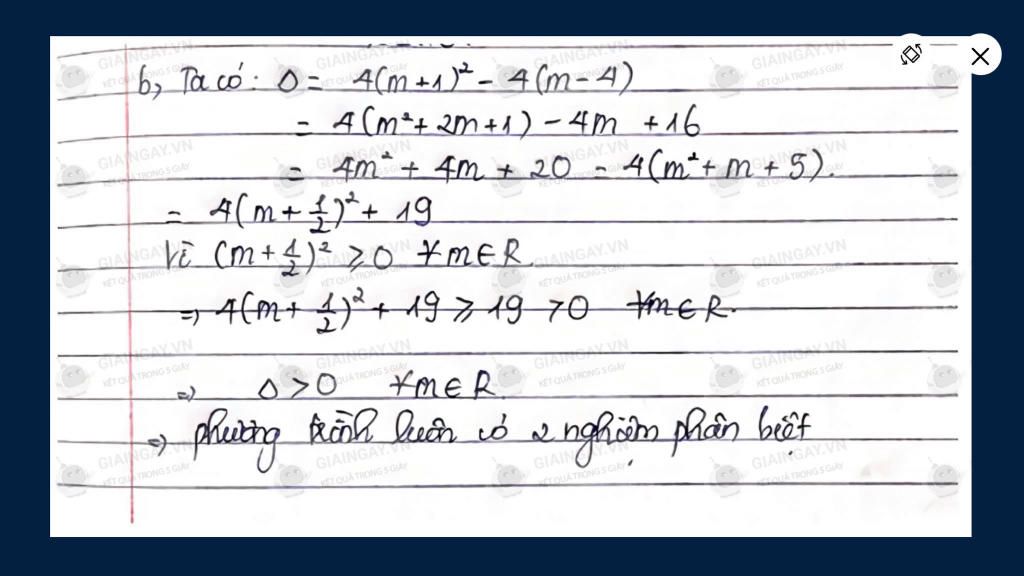 b, Ta có: Δ = 4(m+1)² - 4(m-4)
= 4(m²+2m+1) - 4m + 16
= 4m² + 4m + 20 = 4(m²+m+5).
= 4(m+1/2)² + 19
Vì (m+1/2)² ⩾ 0 ∀m∈R
=> 4(m+1/2)² + 19 ⩾ 19 > 0 ∀m∈R.
=> Δ > 0 ∀m∈R.
=> phương trình luôn có 2 nghiệm phân biệt
GIAINGAY.VN
KẾT QUẢ TRONG 5 GIÂY